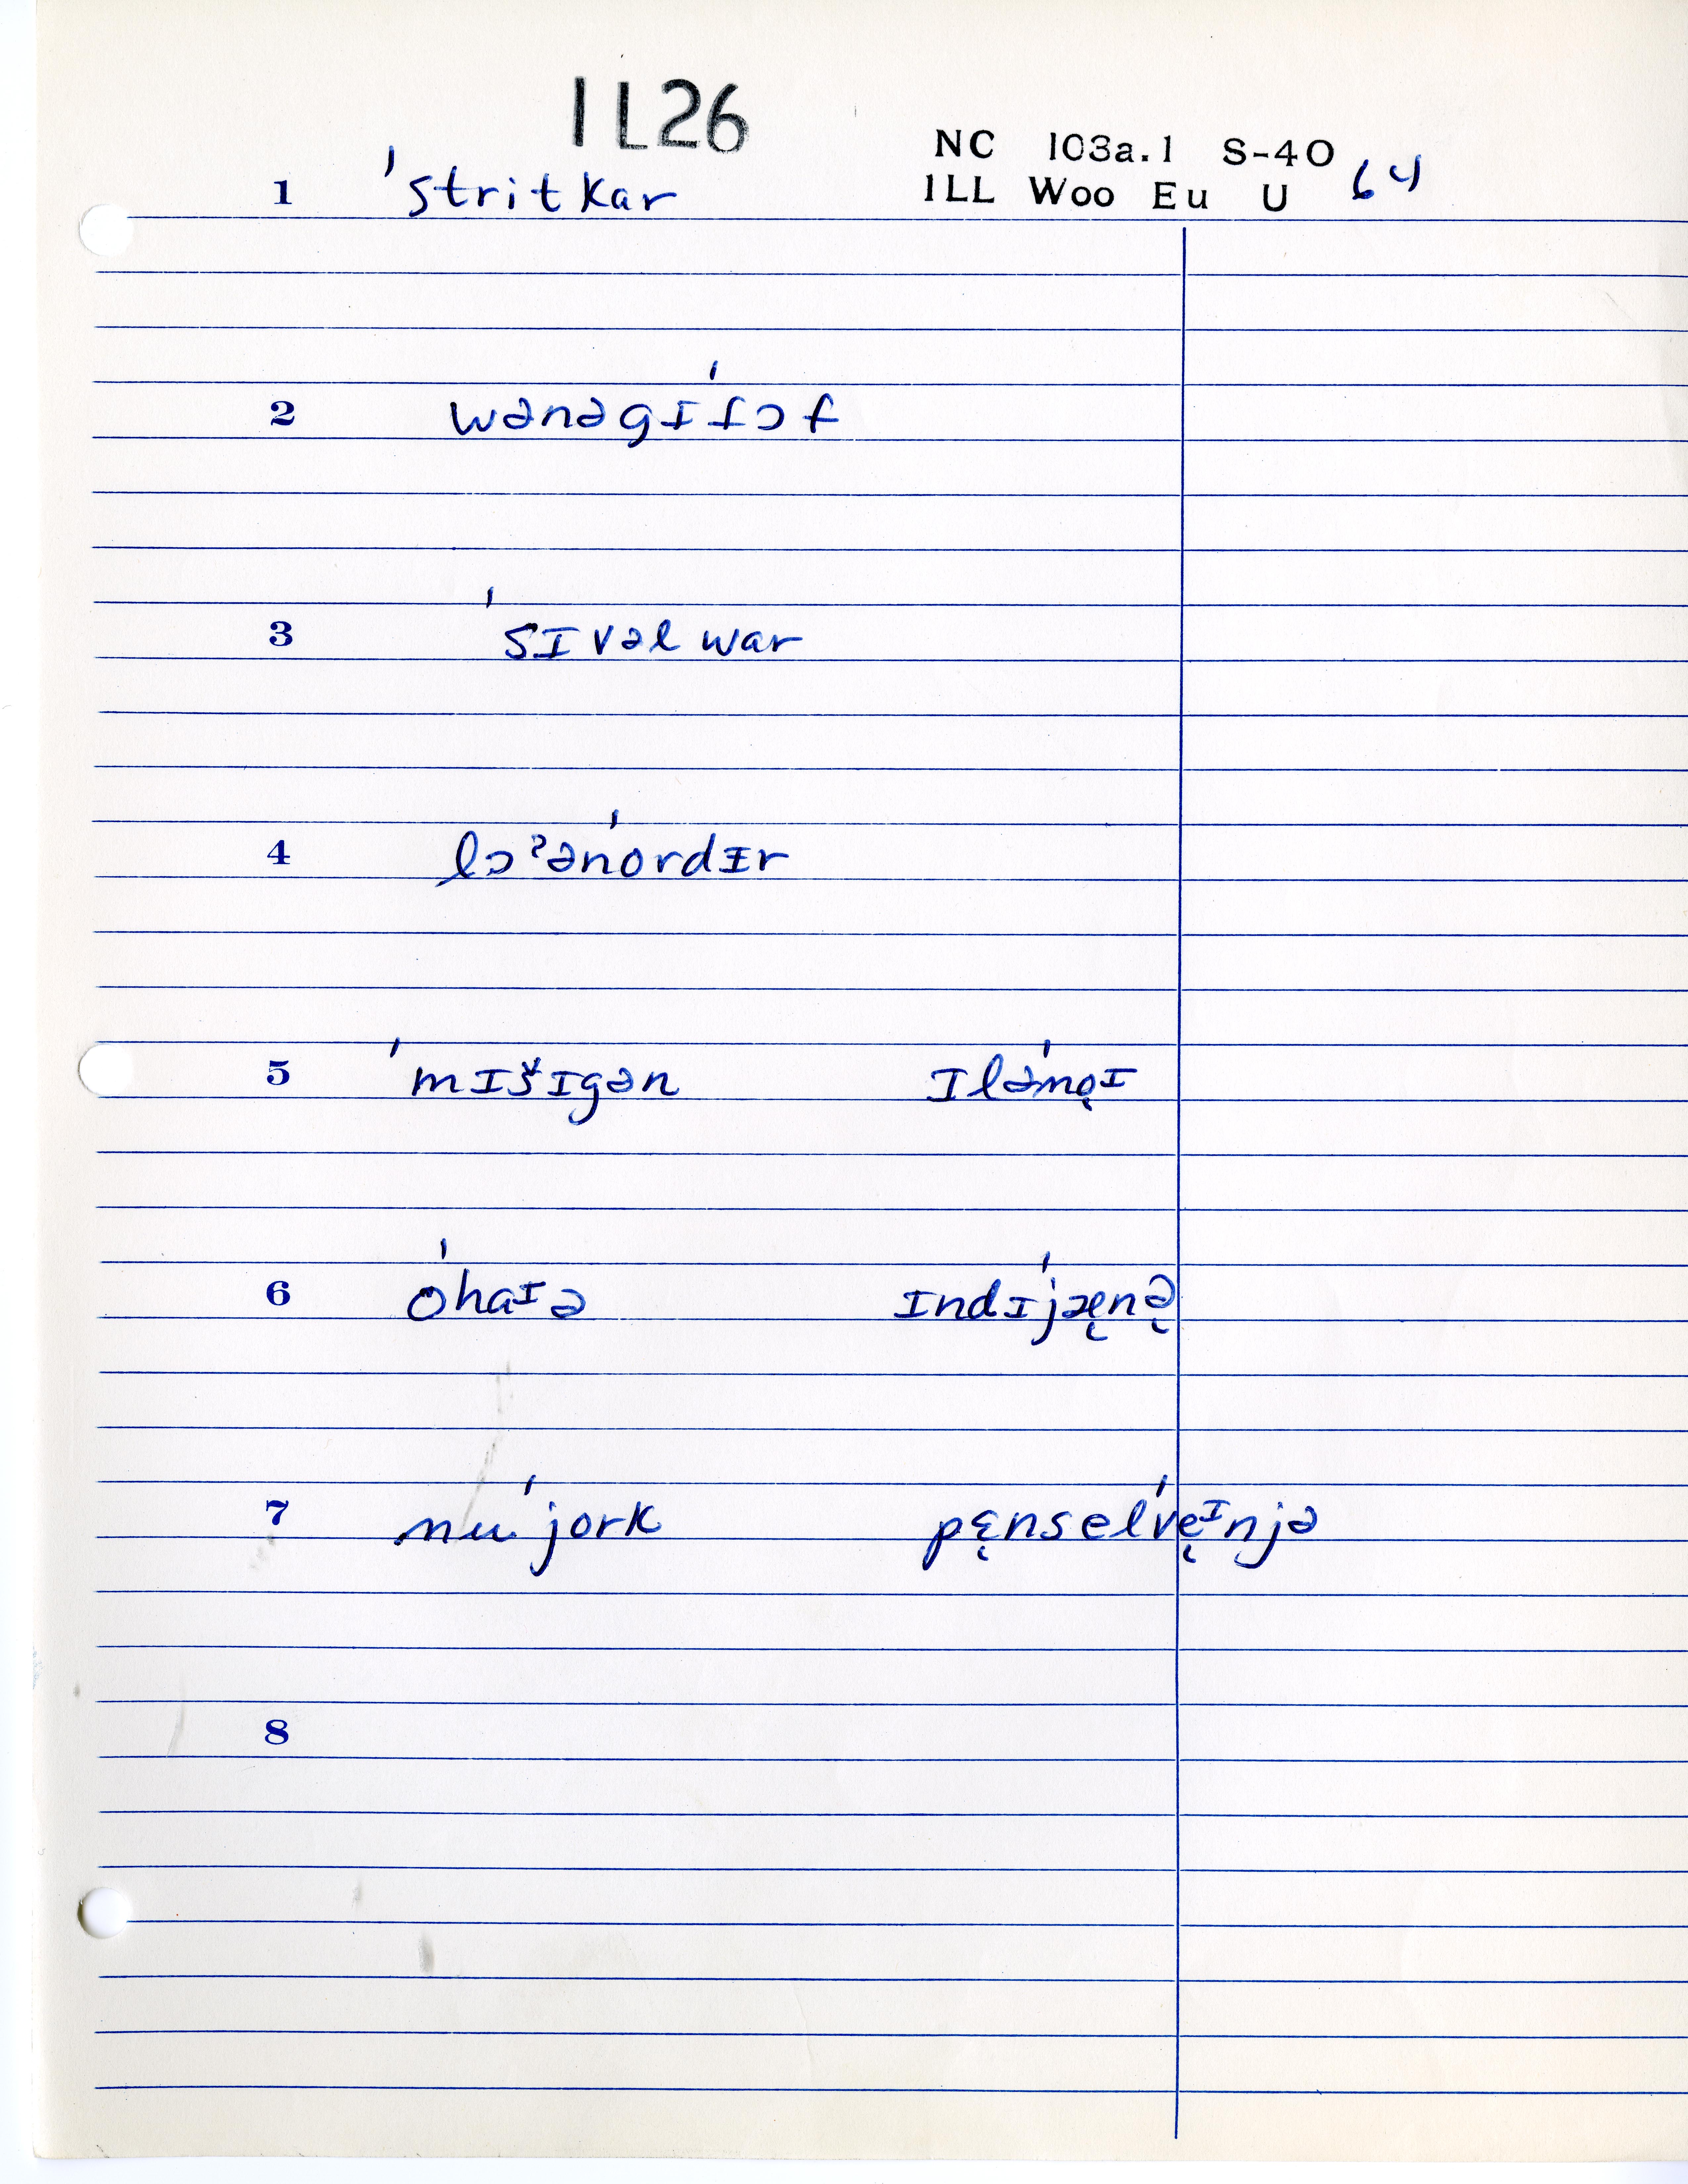 IL26
NC 103a.1 S-40 64
ILL Woo Eu U
1 'stritkar
2 wənəgɪ'ʃɔf
3 'sɪvəlwar
4 lɔˀən'ordɪr
5 'mɪšɪgən ɪlə'nǫɪ
6 'ohaᶦə ɪndɪ'jæ̨nə̨
7 nu'jork pɛ̨nsel'vę ᶦnjə
8